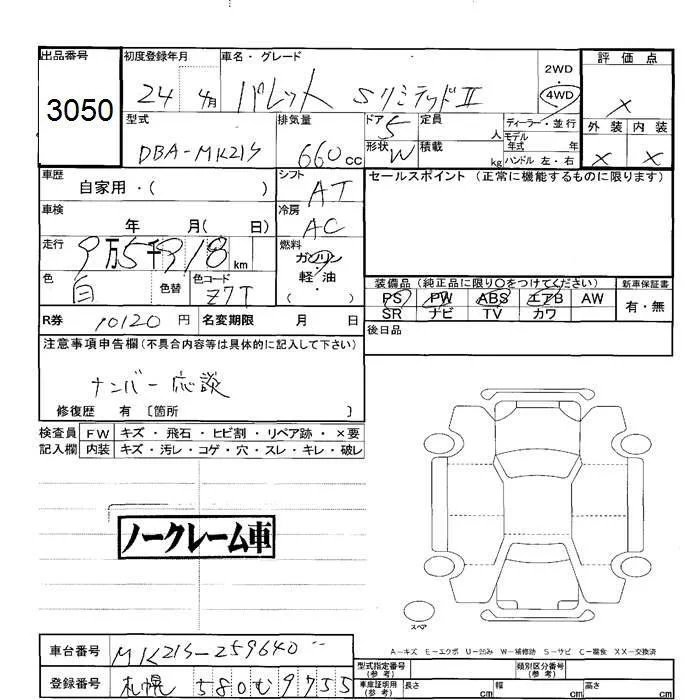 出品番号 初度登録年月 車名・グレード 2WD 4WD 評価点
3050 24 4月 パレット SリミテッドⅡ ×
型式 排気量 ドア 5 定員 人 ディーラー・並行 モデル年式 年 外装 内装
DBA-MK21S 660 cc 形状 W 積載 kg ハンドル 左・右 × ×
車歴 シフト セールスポイント (正常に機能するものに限ります)
自家用・( ) AT
車検 冷房
年 月( 日) AC
走行 9万5千918 km 燃料 ガソリン
軽・油
( )
色 白 色替 色コード Z7T 装備品 (純正品に限り○をつけてください) 新車保証書
PS PW ABS エアB AW 有・無
SR ナビ TV カワ
R券 10120 円 名変期限 月 日 後日品
注意事項申告欄(不具合内容等は具体的に記入して下さい)
ナンバー応談
修復歴 有 〔箇所 〕
検査員 FW キズ・飛石・ヒビ割・リペア跡・×要
記入欄 内装 キズ・汚レ・コゲ・穴・スレ・キレ・破レ
ノークレーム車
スペア
A-キズ E-エクボ U-凹み W-補修跡 S-サビ C-腐食 XX-交換済
車台番号 MK21S-259640 型式指定番号(参考) 類別区分番号(参考)
登録番号 札幌 580 む 9755 車庫証明用(参考) 長さ cm 幅 cm 高さ cm